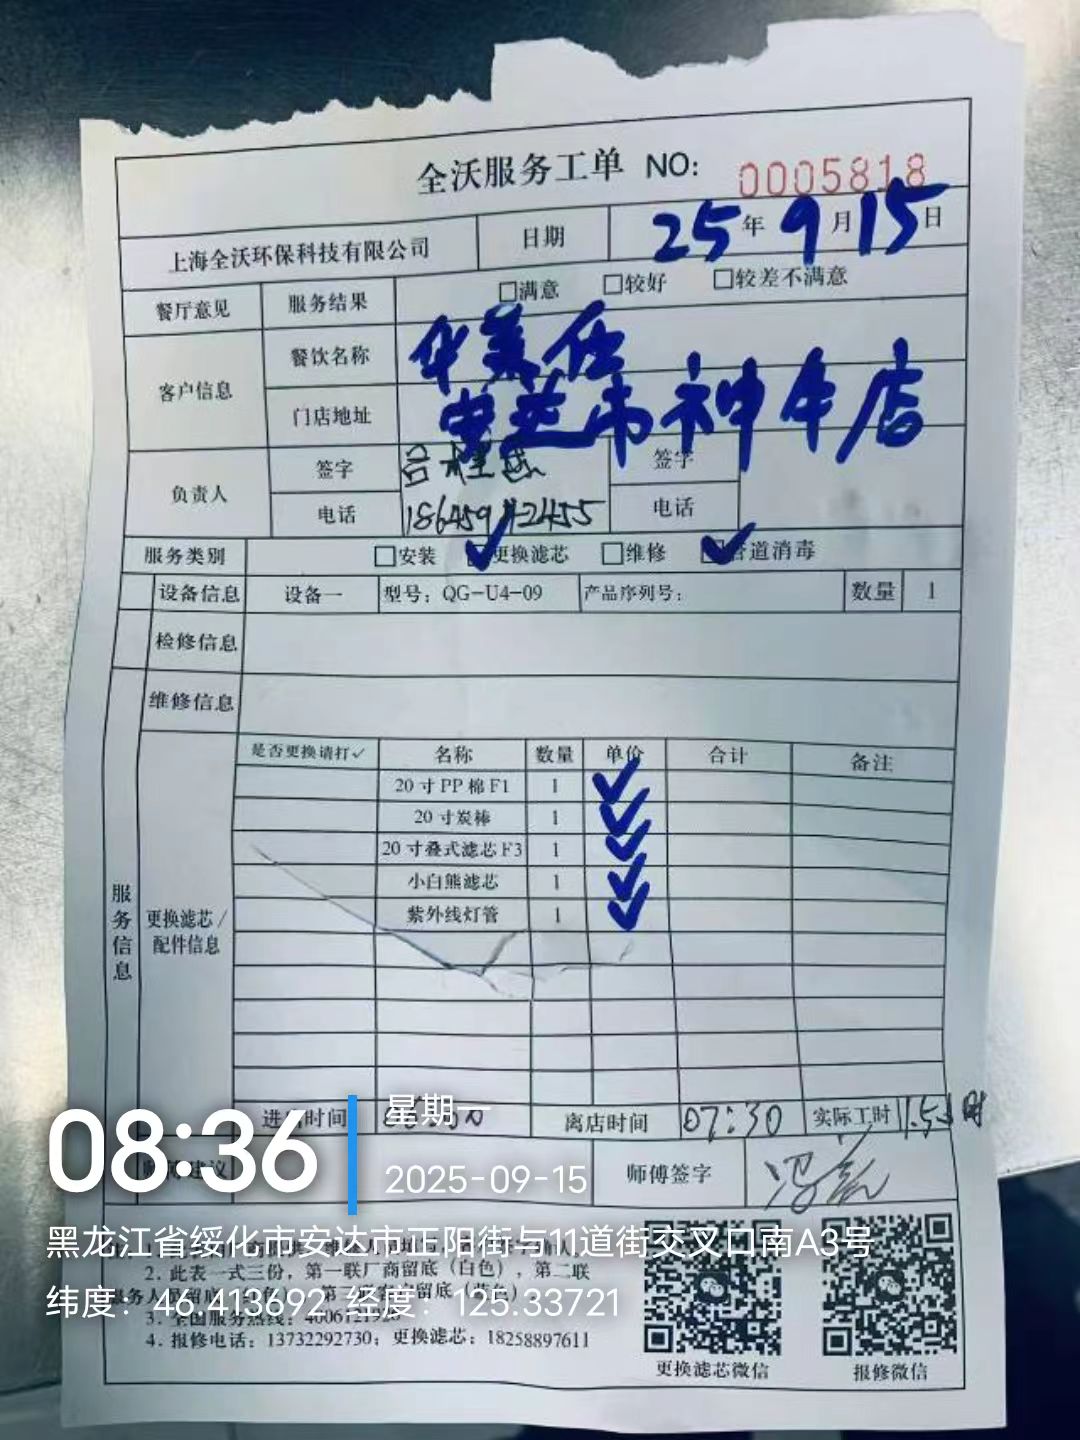 全沃服务工单 NO: 0005818
上海全沃环保科技有限公司 日期 25年9月15日
餐厅意见 服务结果 □满意 □较好 □较差不满意
客户信息 餐饮名称 华莱仕
门店地址 安达市神牛店
负责人 签字 签字
电话 电话
服务类别 □安装 ✓更换滤芯 □维修 ✓管道消毒
设备信息 设备一 型号：QG-U4-09 产品序列号： 数量 1
检修信息
维修信息
服务信息
更换滤芯/配件信息
是否更换请打✓ 名称 数量 单价 合计 备注
20寸PP棉F1 1 ✓
20寸炭棒 1 ✓
20寸叠式滤芯F3 1 ✓
小白熊滤芯 1 ✓
紫外线灯管 1 ✓
进店时间 离店时间 07:30 实际工时
师傅建议 师傅签字
2. 此表一式三份，第一联厂商留底（白色），第二联
3. 全国服务热线：
4. 报修电话：13732292730；更换滤芯：18258897611
更换滤芯微信 报修微信
08:36
星期一
2025-09-15
黑龙江省绥化市安达市正阳街与11道街交叉口南A3号
纬度：46.413692 经度：125.33721